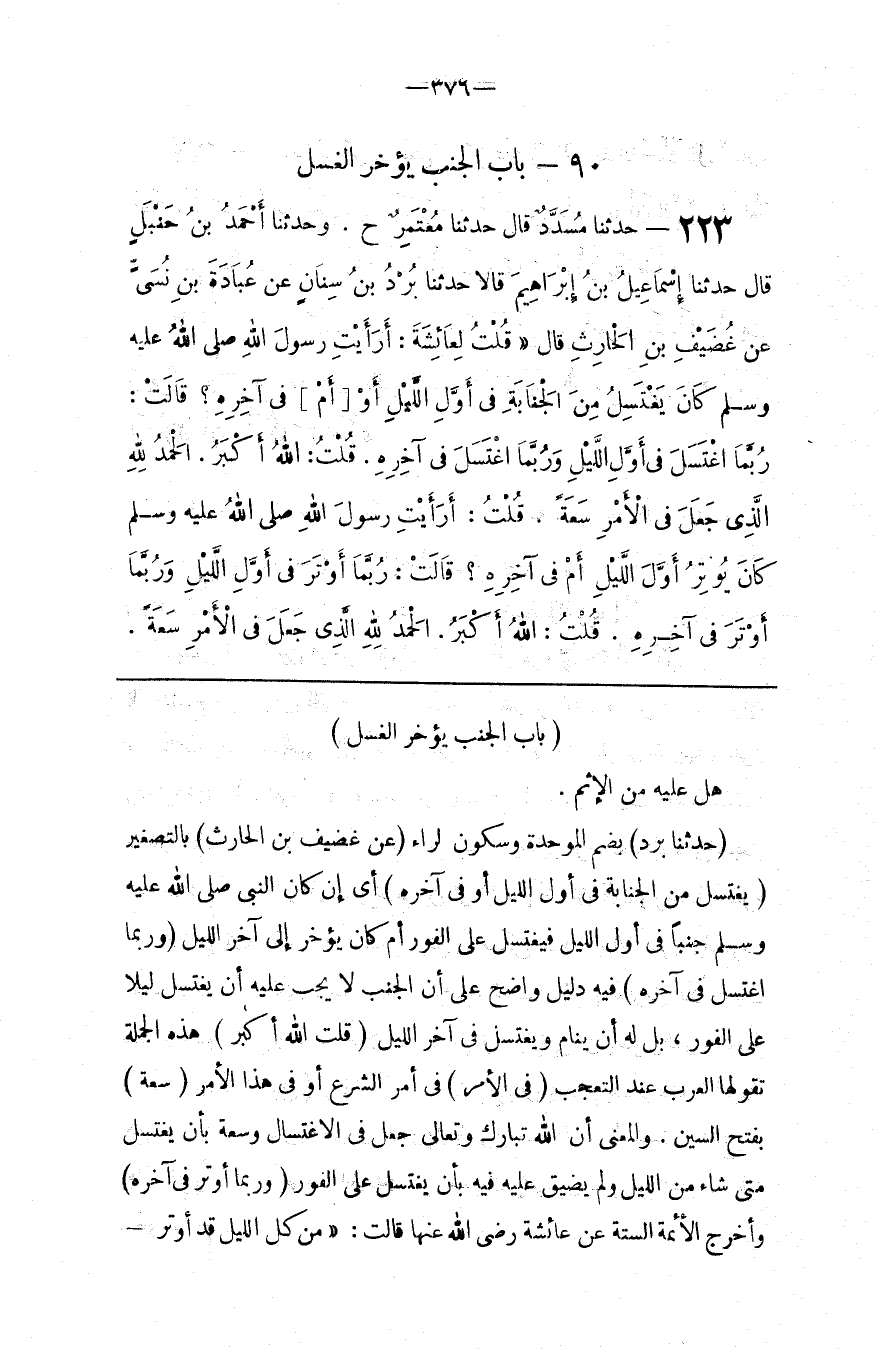 —٣٧٦—
٩٠ — باب الجنب يؤخر الغسل
٢٢٣ — حدثنا مُسَدَّدٌ قال حدثنا مُعْتَمِرٌ ح . وحدثنا أَحْمَدُ بنُ حَنْبَلٍ
قال حدثنا إِسْمَاعِيلُ بنُ إِبْرَاهِيمَ قالا حدثنا بُرْدُ بنُ سِنَانٍ عن عُبَادَةَ بنِ نُسَىٍّ
عن غُضَيْفِ بنِ الْحَارِثِ قال « قُلْتُ لِعَائِشَةَ : أَرَأَيْتِ رسولَ اللهِ صلى اللهُ عليه
وسلم كَانَ يَغْتَسِلُ مِنَ الْجَنَابَةِ فى أَوَّلِ اللَّيْلِ أَوْ [ أَمْ ] فى آخِرِهِ ؟ قَالَتْ :
رُبَّمَا اغْتَسَلَ فى أَوَّلِ اللَّيْلِ وَرُبَّمَا اغْتَسَلَ فى آخِرِهِ . قُلْتُ : اللهُ أَكْبَرُ . الْحَمْدُ لِلهِ
الَّذِى جَعَلَ فى الْأَمْرِ سَعَةً . قُلْتُ : أَرَأَيْتِ رسولَ اللهِ صلى اللهُ عليه وسلم
كَانَ يُوتِرُ أَوَّلَ اللَّيْلِ أَمْ فى آخِرِهِ ؟ قَالَتْ : رُبَّمَا أَوْتَرَ فى أَوَّلِ اللَّيْلِ وَرُبَّمَا
أَوْتَرَ فى آخِرِهِ . قُلْتُ : اللهُ أَكْبَرُ . الْحَمْدُ لِلهِ الَّذِى جَعَلَ فى الْأَمْرِ سَعَةً .
( باب الجنب يؤخر الغسل )
هل عليه من الإثم .
(حدثنا برد) بضم الموحدة وسكون لراء (عن غضيف بن الحارث) بالتصغير
( يغتسل من الجنابة فى أول الليل أو فى آخره ) أى إن كان النبى صلى الله عليه
وسلم جنباً فى أول الليل فيغتسل على الفور أم كان يؤخر إلى آخر الليل (وربما
اغتسل فى آخره ) فيه دليل واضح على أن الجنب لا يجب عليه أن يغتسل ليلا
على الفور ، بل له أن ينام ويغتسل فى آخر الليل ( قلت الله أكبر ) هذه الجملة
تقولها العرب عند التعجب ( فى الأمر ) فى أمر الشرع أو فى هذا الأمر ( سعة )
بفتح السين . والمعنى أن الله تبارك وتعالى جعل فى الاغتسال وسعة بأن يغتسل
متى شاء من الليل ولم يضيق عليه فيه بأن يغتسل على الفور ( وربما أوتر فى آخره)
وأخرج الأئمة الستة عن عائشة رضى الله عنها قالت : « من كل الليل قد أوتر —